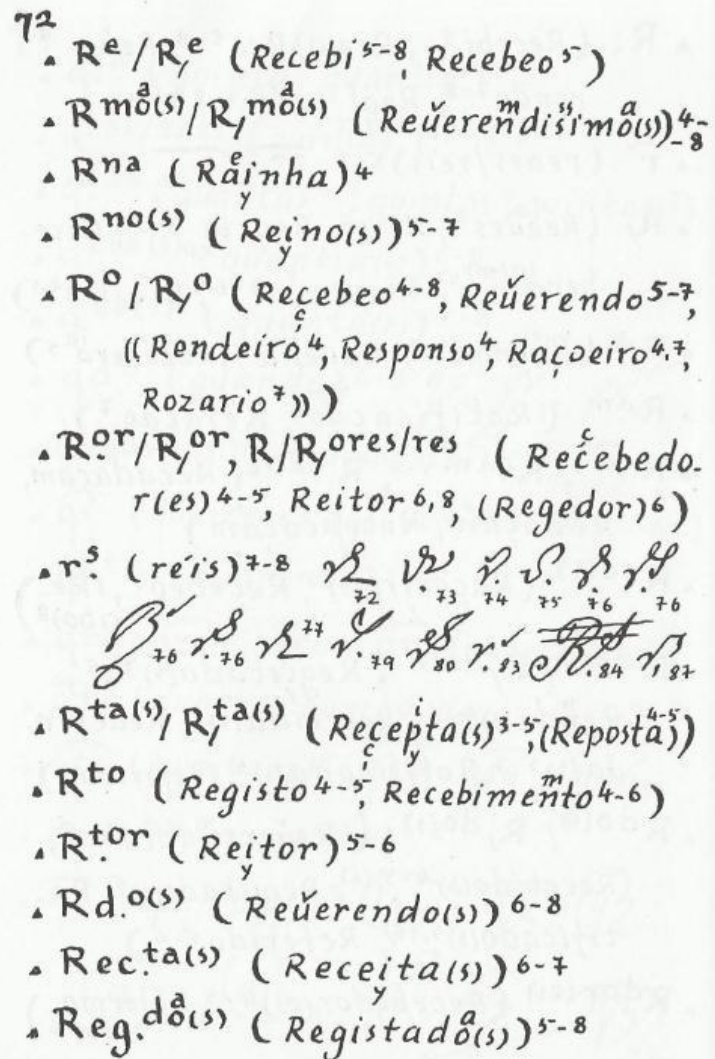 72
▴ Rᵉ/R,ᵉ (Recebi⁵⁻⁸, Recebeo⁵)
▴ Rmo(s)/R,mo(s) (Reuerendissimo(s))⁴⁻⁸
▴ Rna (Rainha)⁴
▴ Rno(s) (Reino(s))⁵⁻⁷
▴ Rº/R,º (Recebeo⁴⁻⁸, Reuerendo⁵⁻⁷,
((Rendeiro⁴, Responso⁴, Raçoeiro⁴·⁷,
Rozario⁷)))
▴ R.or/R,or, R/R,ores/res (Recebedo-
r(es)⁴⁻⁵, Reitor⁶,⁸, (Regedor)⁶)
▴ r.s (réis)⁷⁻⁸ 72 73 74 75 76 76
76 76 77 79 80 83 84 87
▴ Rta(s)/R,ta(s) (Recepta(s)³⁻⁵, (Reposta⁴⁻⁵))
▴ Rto (Registo⁴⁻⁵, Recebimento⁴⁻⁶)
▴ R.tor (Reitor)⁵⁻⁶
▴ Rd.o(s) (Reuerendo(s))⁶⁻⁸
▴ Rec.ta(s) (Receita(s))⁶⁻⁷
▴ Reg.do(s) (Registado(s))⁵⁻⁸